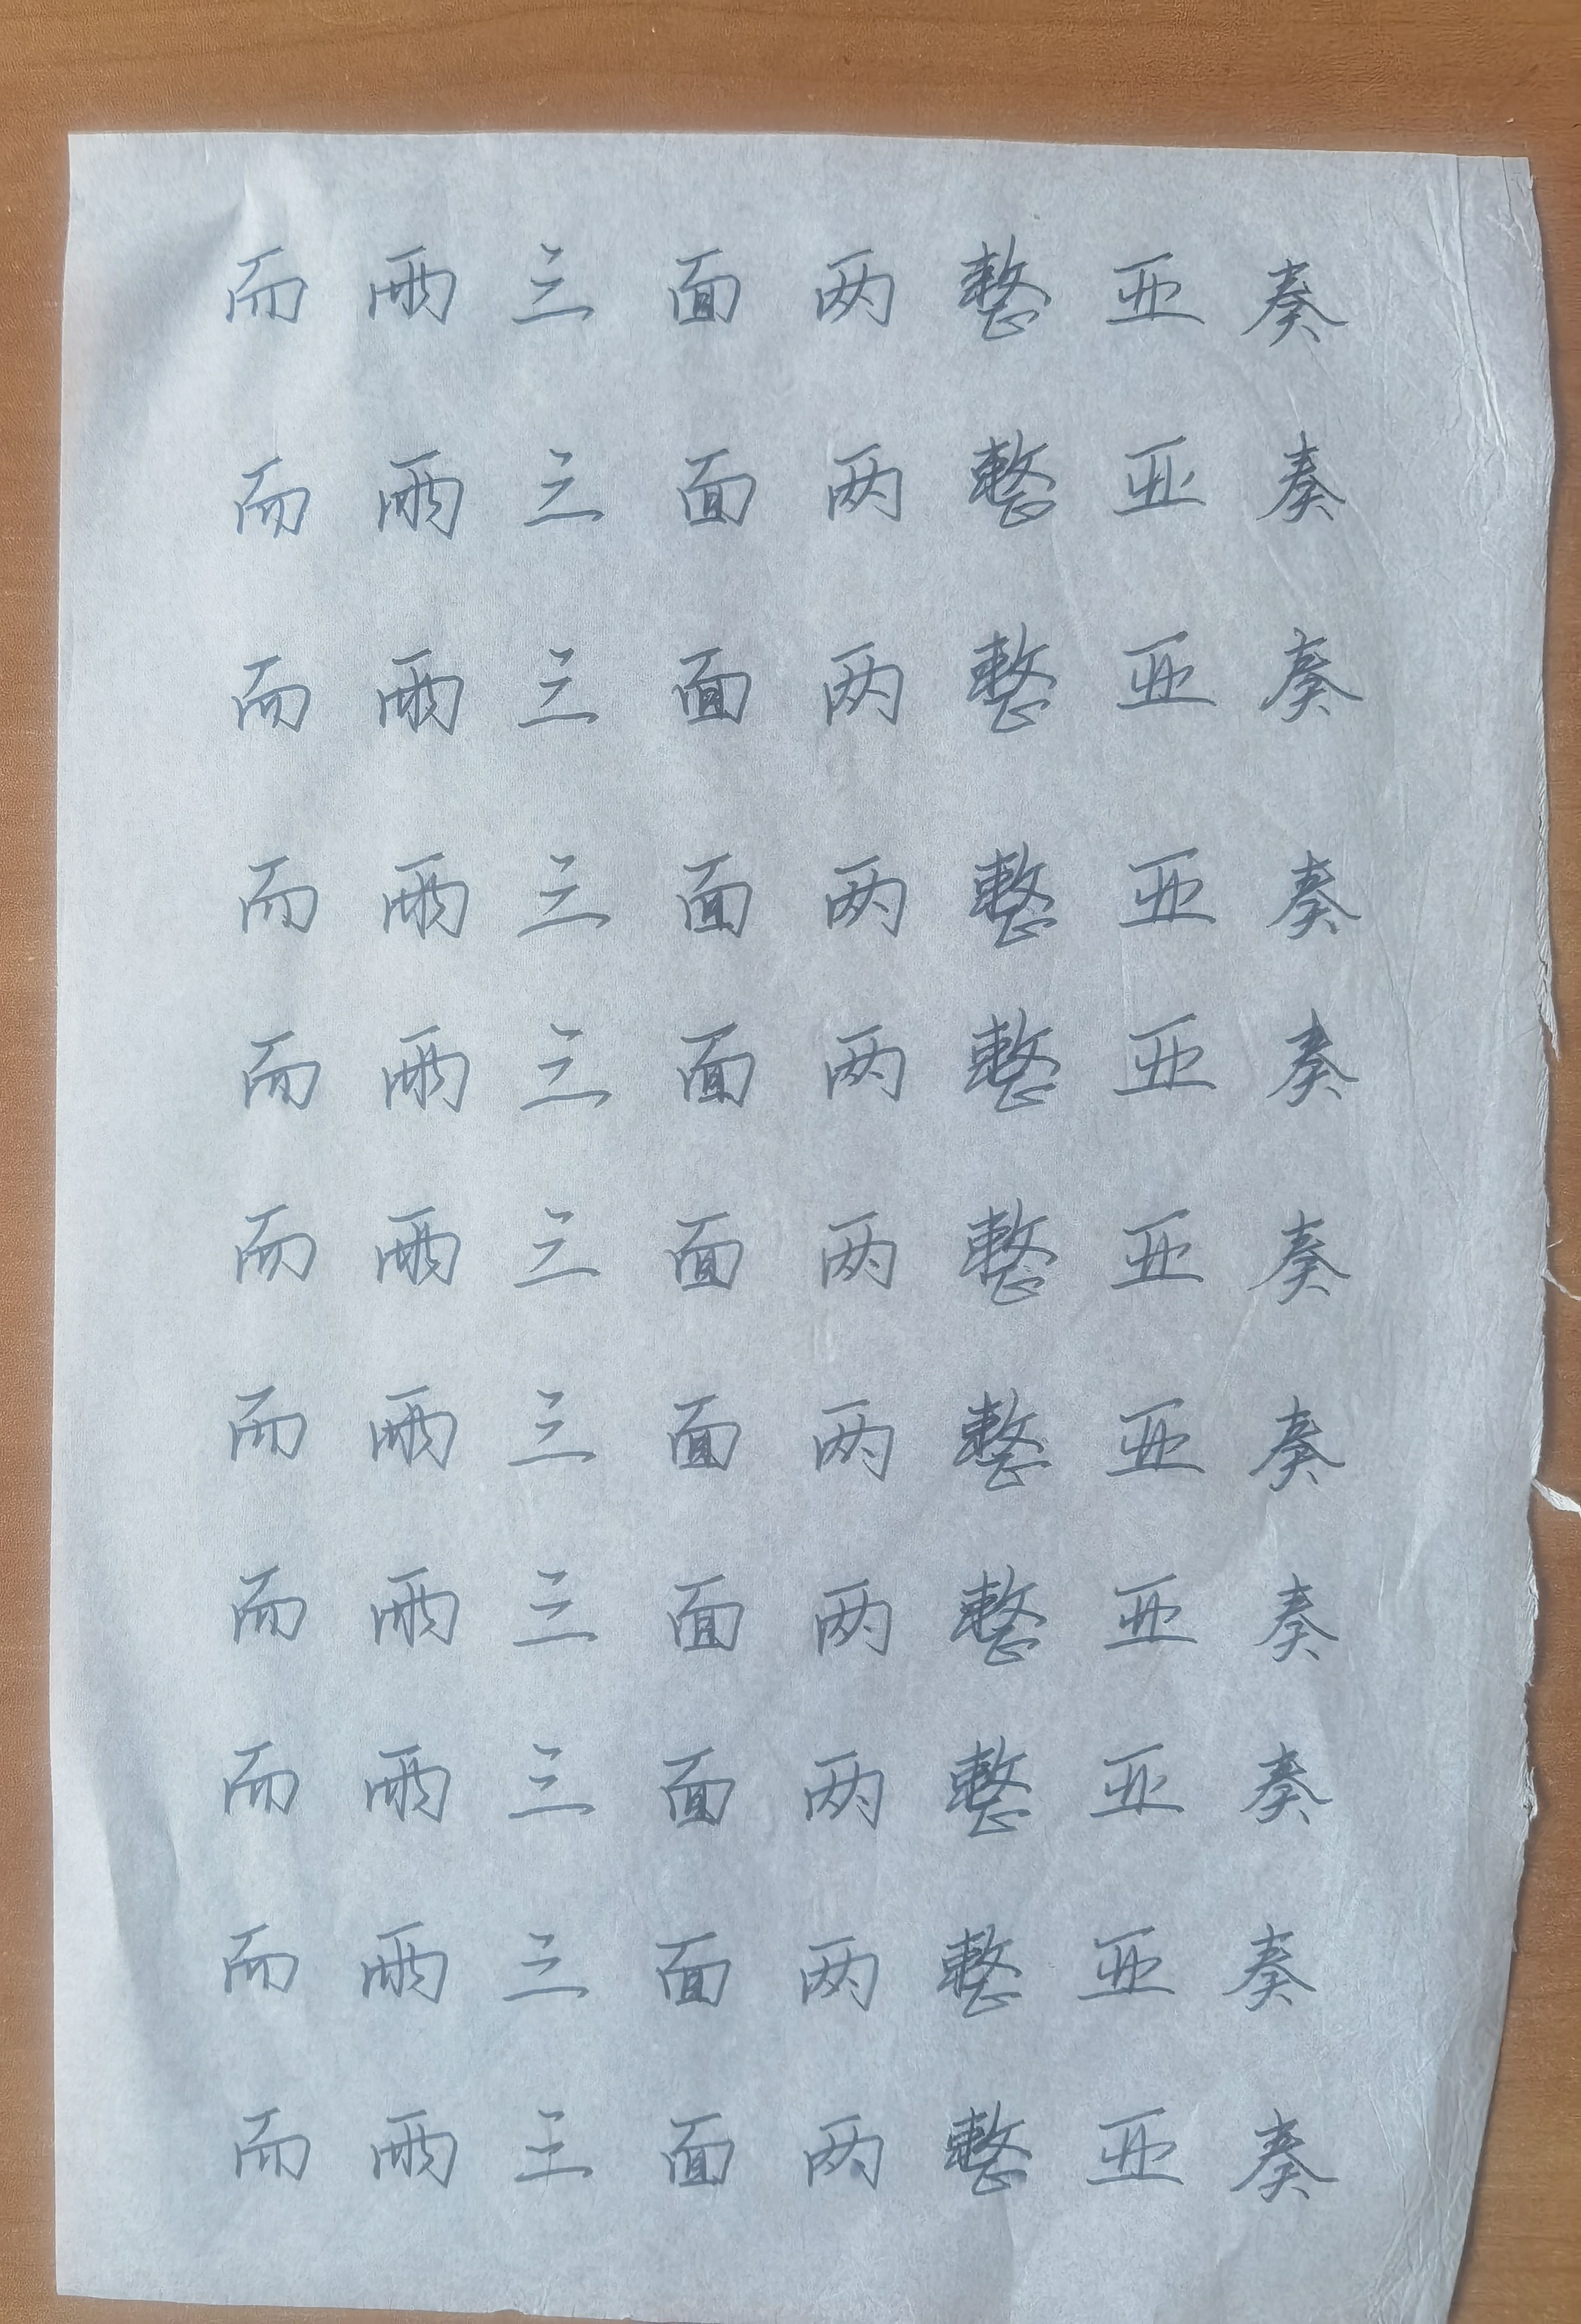 而 雨 三 面 两 整 亚 奏
而 雨 三 面 两 整 亚 奏
而 雨 三 面 两 整 亚 奏
而 雨 三 面 两 整 亚 奏
而 雨 三 面 两 整 亚 奏
而 雨 三 面 两 整 亚 奏
而 雨 三 面 两 整 亚 奏
而 雨 三 面 两 整 亚 奏
而 雨 三 面 两 整 亚 奏
而 雨 三 面 两 整 亚 奏
而 雨 王 面 两 整 亚 奏